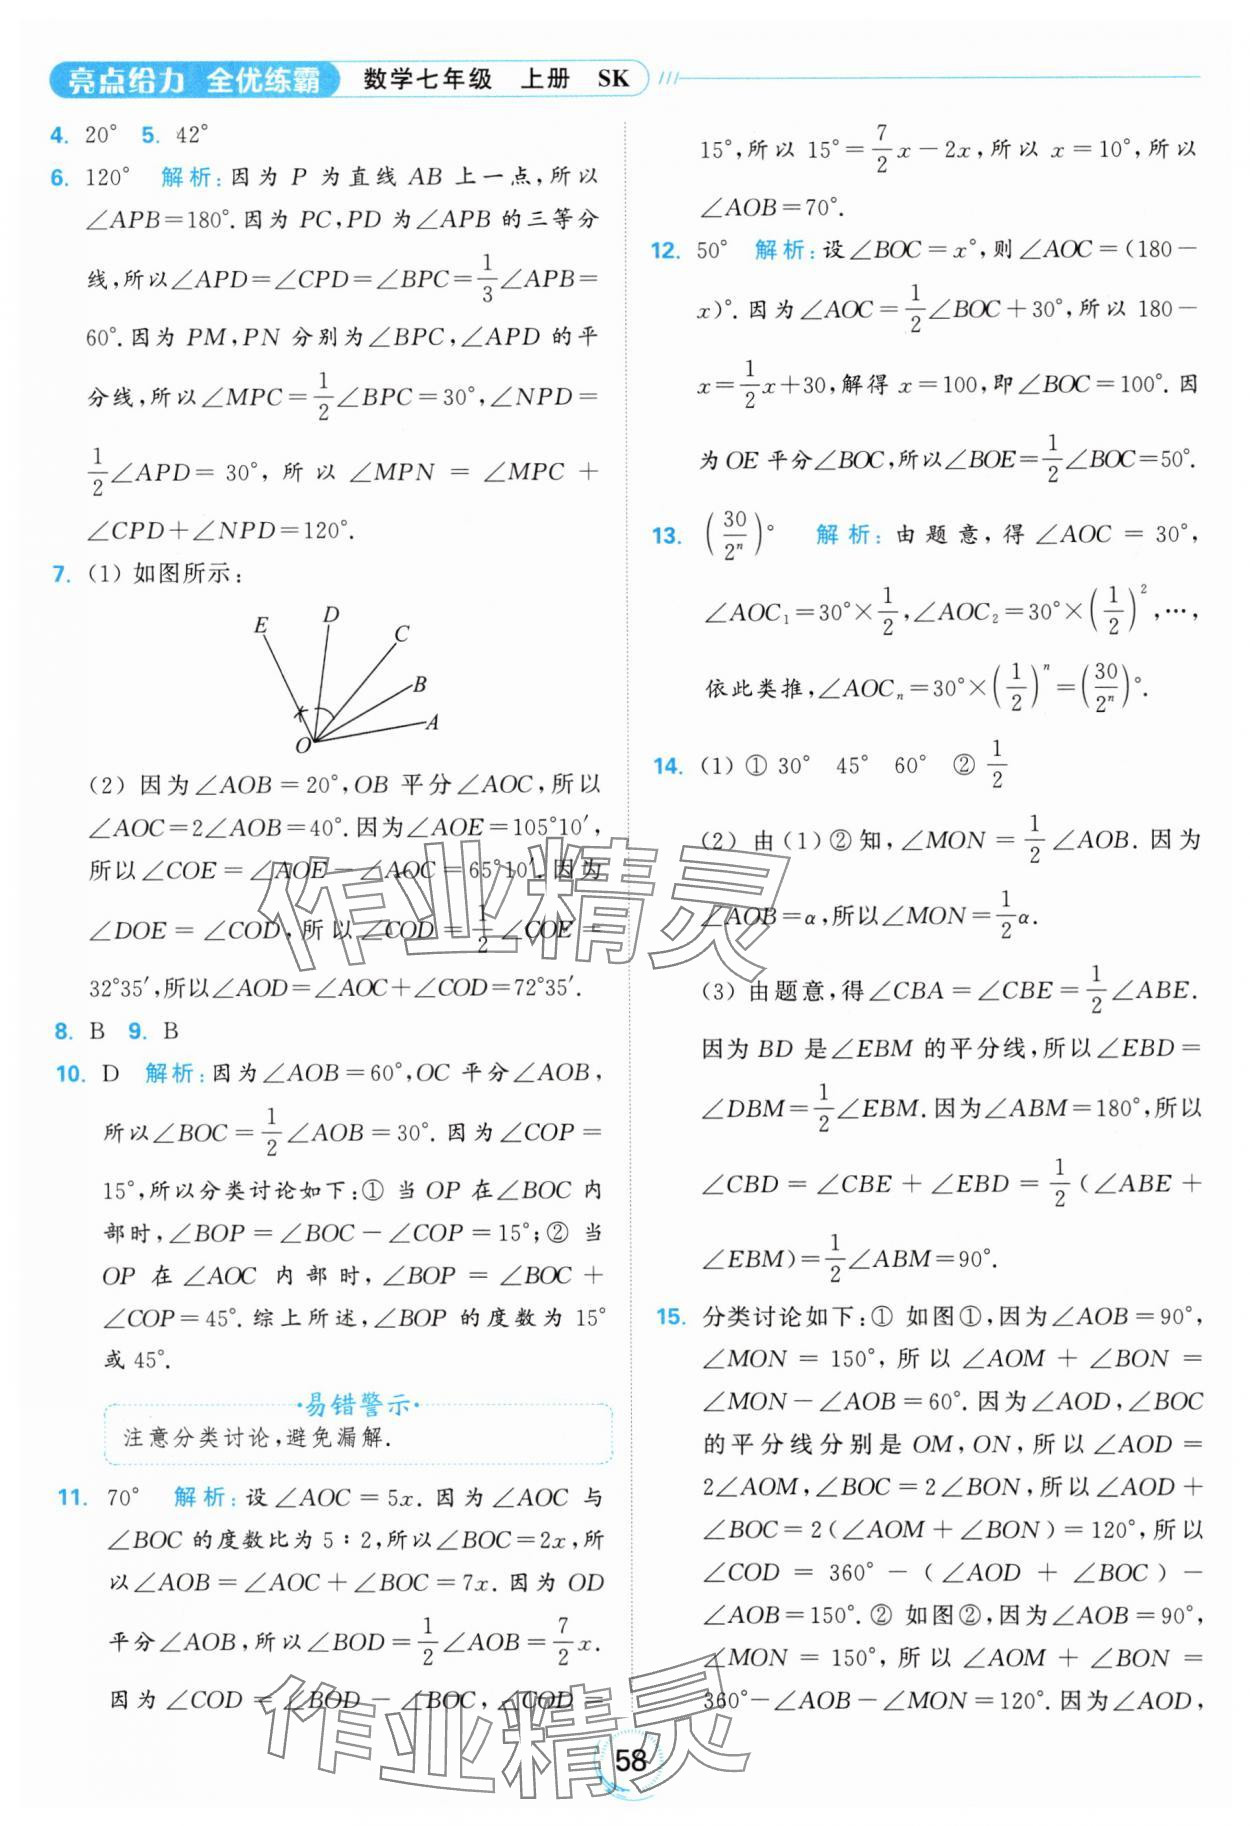 亮点给力 全优练霸 数学七年级 上册 SK
4. 20° 5. 42°
6. 120° 解析:因为 P 为直线 AB 上一点,所以
∠APB=180°.因为 PC,PD 为∠APB 的三等分
线,所以∠APD=∠CPD=∠BPC=1/3∠APB=
60°.因为 PM,PN 分别为∠BPC,∠APD 的平
分线,所以∠MPC=1/2∠BPC=30°,∠NPD=
1/2∠APD=30°,所以∠MPN=∠MPC+
∠CPD+∠NPD=120°.
7. (1) 如图所示:
E
D
C
B
A
O
(2) 因为∠AOB=20°,OB 平分∠AOC,所以
∠AOC=2∠AOB=40°.因为∠AOE=105°10′,
所以∠COE=∠AOE-∠AOC=65°10′.因为
∠DOE=∠COD,所以∠COD=1/2∠COE=
32°35′,所以∠AOD=∠AOC+∠COD=72°35′.
8. B 9. B
10. D 解析:因为∠AOB=60°,OC 平分∠AOB,
所以∠BOC=1/2∠AOB=30°.因为∠COP=
15°,所以分类讨论如下:① 当 OP 在∠BOC 内
部时,∠BOP=∠BOC-∠COP=15°;② 当
OP 在∠AOC 内部时,∠BOP=∠BOC+
∠COP=45°.综上所述,∠BOP 的度数为 15°
或 45°.
·易错警示·
注意分类讨论,避免漏解.
11. 70° 解析:设∠AOC=5x.因为∠AOC 与
∠BOC 的度数比为 5∶2,所以∠BOC=2x,所
以∠AOB=∠AOC+∠BOC=7x.因为 OD
平分∠AOB,所以∠BOD=1/2∠AOB=7/2x.
因为∠COD=∠BOD-∠BOC,∠COD=
15°,所以 15°=7/2x-2x,所以 x=10°,所以
∠AOB=70°.
12. 50° 解析:设∠BOC=x°,则∠AOC=(180-
x)°.因为∠AOC=1/2∠BOC+30°,所以 180-
x=1/2x+30,解得 x=100,即∠BOC=100°.因
为 OE 平分∠BOC,所以∠BOE=1/2∠BOC=50°.
13. (30/2ⁿ)° 解析:由题意,得∠AOC=30°,
∠AOC₁=30°×1/2,∠AOC₂=30°×(1/2)²,…,
依此类推,∠AOCₙ=30°×(1/2)ⁿ=(30/2ⁿ)°.
14. (1) ① 30° 45° 60° ② 1/2
(2) 由(1)②知,∠MON=1/2∠AOB.因为
∠AOB=α,所以∠MON=1/2α.
(3) 由题意,得∠CBA=∠CBE=1/2∠ABE.
因为 BD 是∠EBM 的平分线,所以∠EBD=
∠DBM=1/2∠EBM.因为∠ABM=180°,所以
∠CBD=∠CBE+∠EBD=1/2(∠ABE+
∠EBM)=1/2∠ABM=90°.
15. 分类讨论如下:① 如图①,因为∠AOB=90°,
∠MON=150°,所以∠AOM+∠BON=
∠MON-∠AOB=60°.因为∠AOD,∠BOC
的平分线分别是 OM,ON,所以∠AOD=
2∠AOM,∠BOC=2∠BON,所以∠AOD+
∠BOC=2(∠AOM+∠BON)=120°,所以
∠COD=360°-(∠AOD+∠BOC)-
∠AOB=150°.② 如图②,因为∠AOB=90°,
∠MON=150°,所以∠AOM+∠BON=
360°-∠AOB-∠MON=120°.因为∠AOD,
作业精灵
作业精灵
58